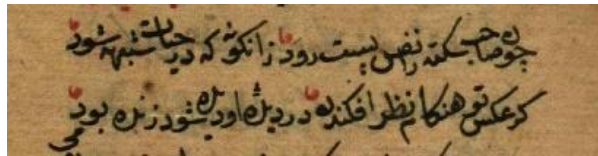 چون صاحب سکته را نفس پست رود زانکونه که در حیات شبهه شود
کر عکس تو هنکام نظر افکندن در دیدهٔ او دیده شود زنده بود